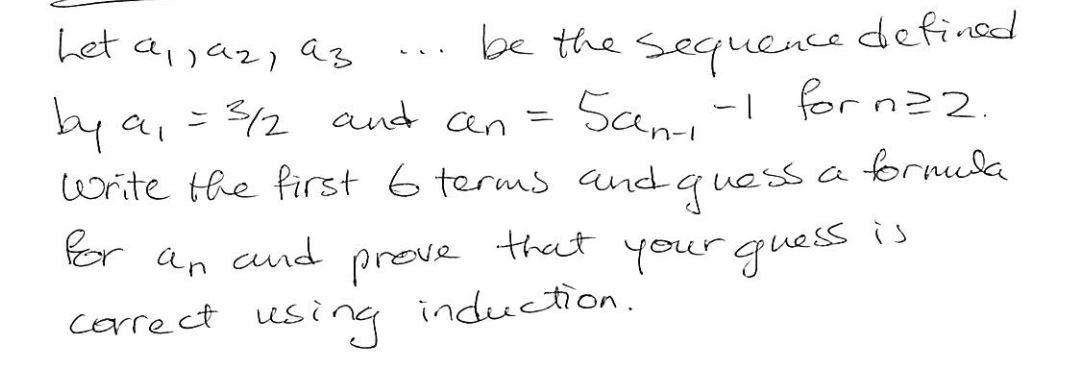 Let a₁, a₂, a₃ ... be the sequence defined
by a₁ = 3/2 and aₙ = 5aₙ₋₁ -1 for n≥2.
Write the first 6 terms and guess a formula
for aₙ and prove that your guess is
correct using induction.